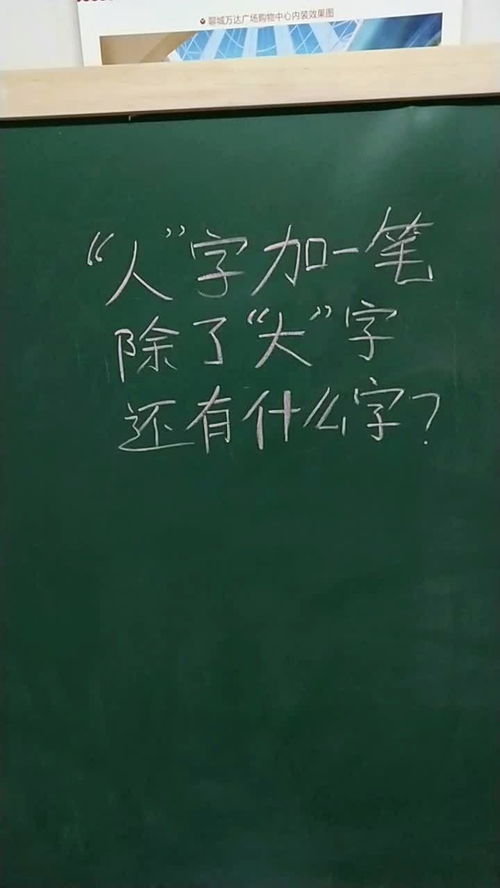 聊城万达广场购物中心内装效果图
“人”字加一笔
除了“大”字
还有什么字?